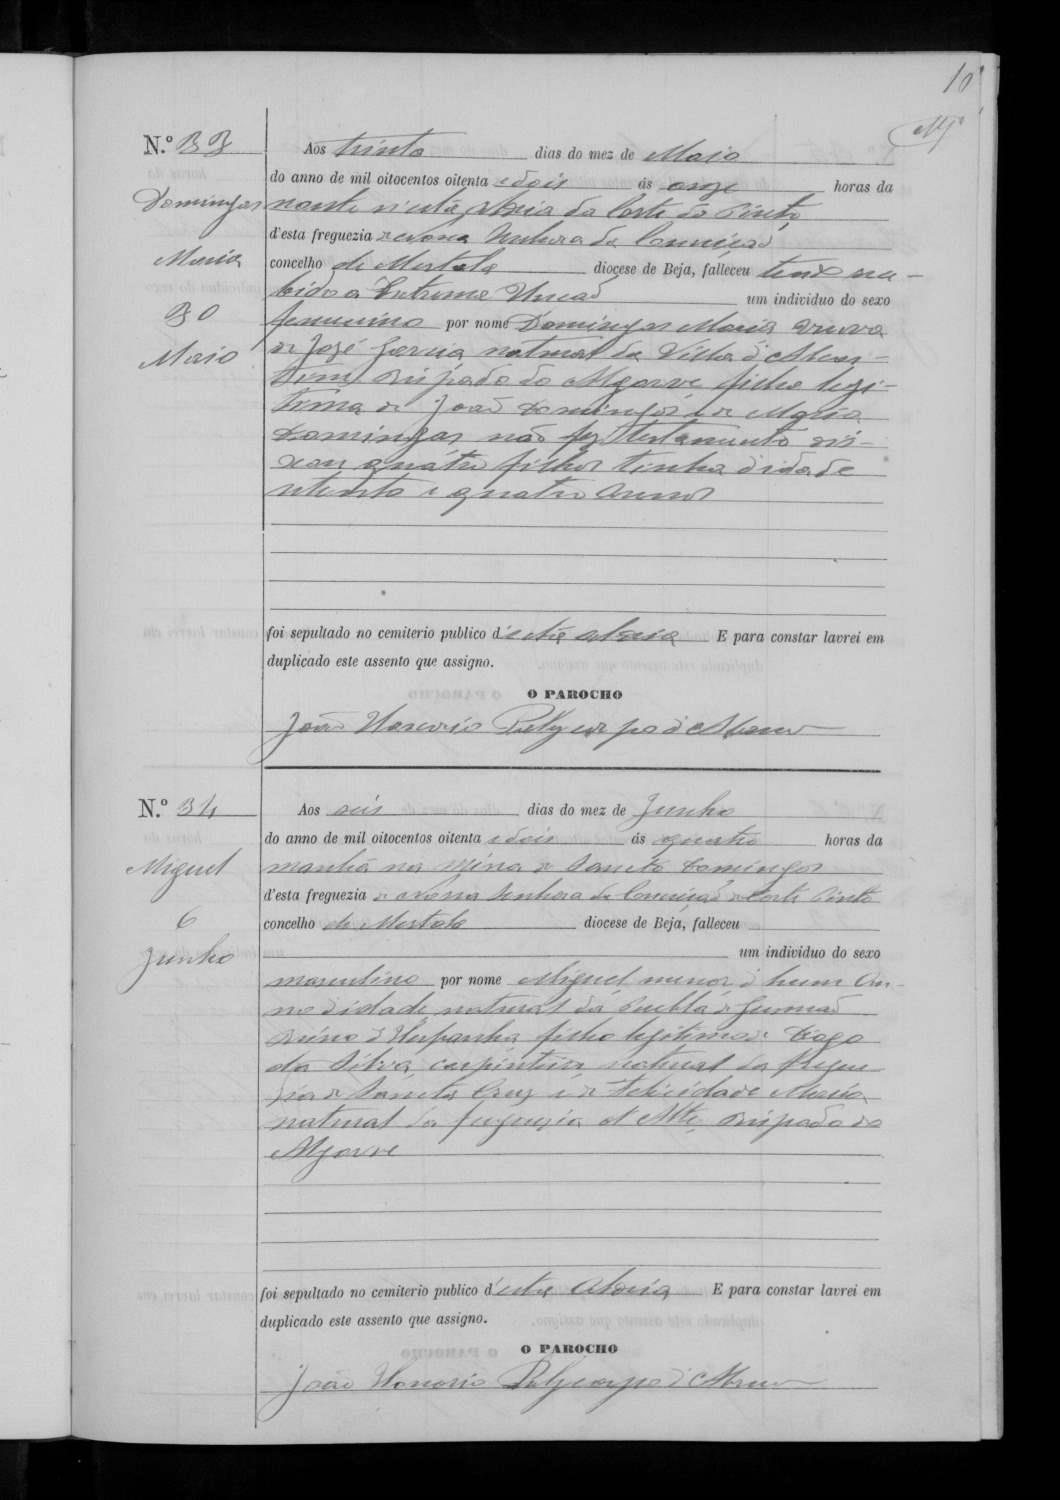 10
N.º 33 Aos trinta dias do mez de Maio
do anno de mil oitocentos oitenta e dois ás onze horas da
Domingas noute n'esta Aldeia da Corte do Pinto
d'esta freguezia de Nossa Senhora da Conceição
Maria concelho de Mertola diocese de Beja, falleceu tendo rece-
bido a Extrema Unção um individuo do sexo
30 femenino por nome Domingas Maria viuva
Maio de José Garcia natural da Villa d'Alcou-
tim Bispado do Algarve filha legi-
tima de João Domingos e de Maria
Domingas não fez testamento dei-
xou quatro filhos tinha d'idade
oitenta e quatro annos
foi sepultado no cemiterio publico d'esta Aldeia E para constar lavrei em
duplicado este assento que assigno.
O PAROCHO
João Honorio Polycarpo d'Abreu
N.º 34 Aos seis dias do mez de Junho
do anno de mil oitocentos oitenta e dois ás quatro horas da
Miguel manhã na Mina de Sancto Domingos
d'esta freguezia de Nossa Senhora da Conceição de Corte Pinto
6 concelho de Mertola diocese de Beja, falleceu
Junho um individuo do sexo
masculino por nome Miguel menor d'hum an-
no d'idade natural da Puebla de Gusmão
Reino d'Hespanha filho legitimo de Tiago
da Silva, carpinteiro natural da fregue-
zia de Sancta Cruz e de Felicidade Maria
natural da freguezia d' Bispado do
Algarve
foi sepultado no cemiterio publico d'esta Aldeia E para constar lavrei em
duplicado este assento que assigno.
O PAROCHO
João Honorio Polycarpo d'Abreu